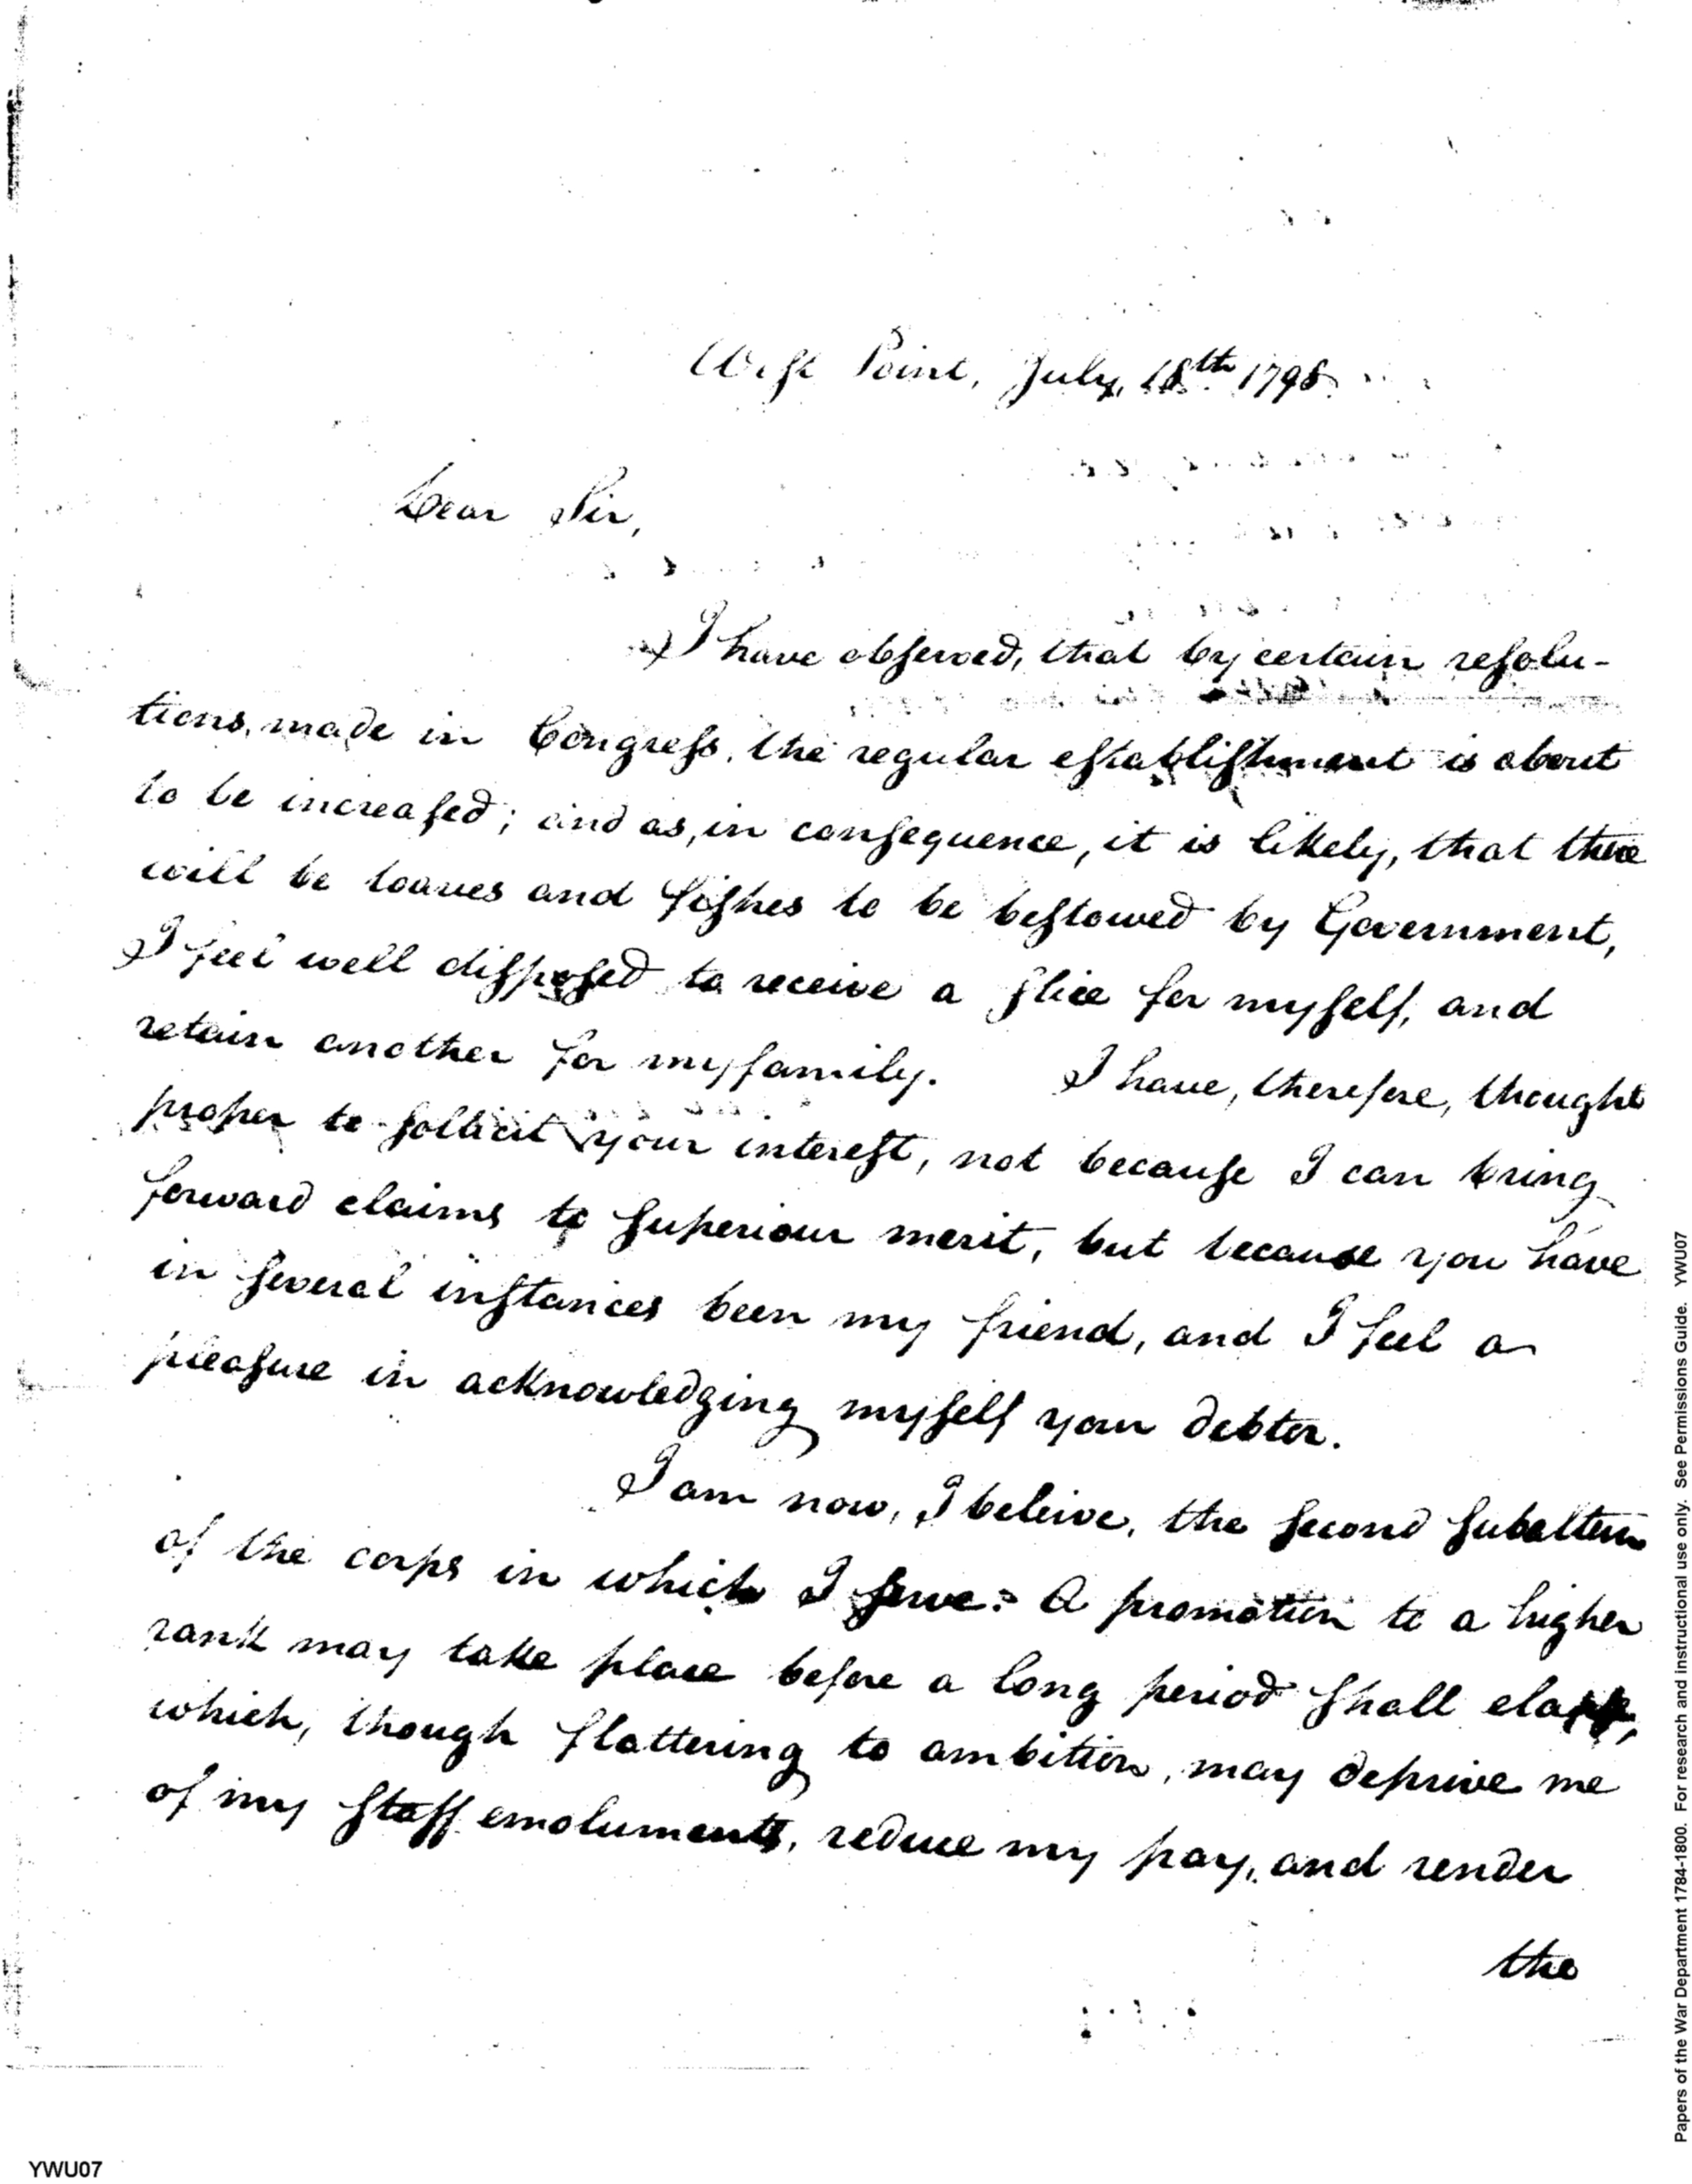 West Point, July, 18th 1798.
Dear Sir,
I have observed, that by certain resolu-
tions, made in Congress, the regular establishment is about
to be increased; and as, in consequence, it is likely, that there
will be loaves and fishes to be bestowed by Government,
I feel well disposed to receive a slice for myself, and
retain another for my family. I have, therefore, thought
proper to sollicit your interest, not because I can bring
forward claims to superiour merit, but because you have
in several instances been my friend, and I feel a
pleasure in acknowledging myself your debtor.
I am now, I beleive, the second subaltern
of the corps in which I serve: A promotion to a higher
rank may take place before a long period shall elapse,
which, though flattering to ambition, may deprive me
of my staff emoluments, reduce my pay, and render
the
YWU07
Papers of the War Department 1784-1800. For research and instructional use only. See Permissions Guide. YWU07